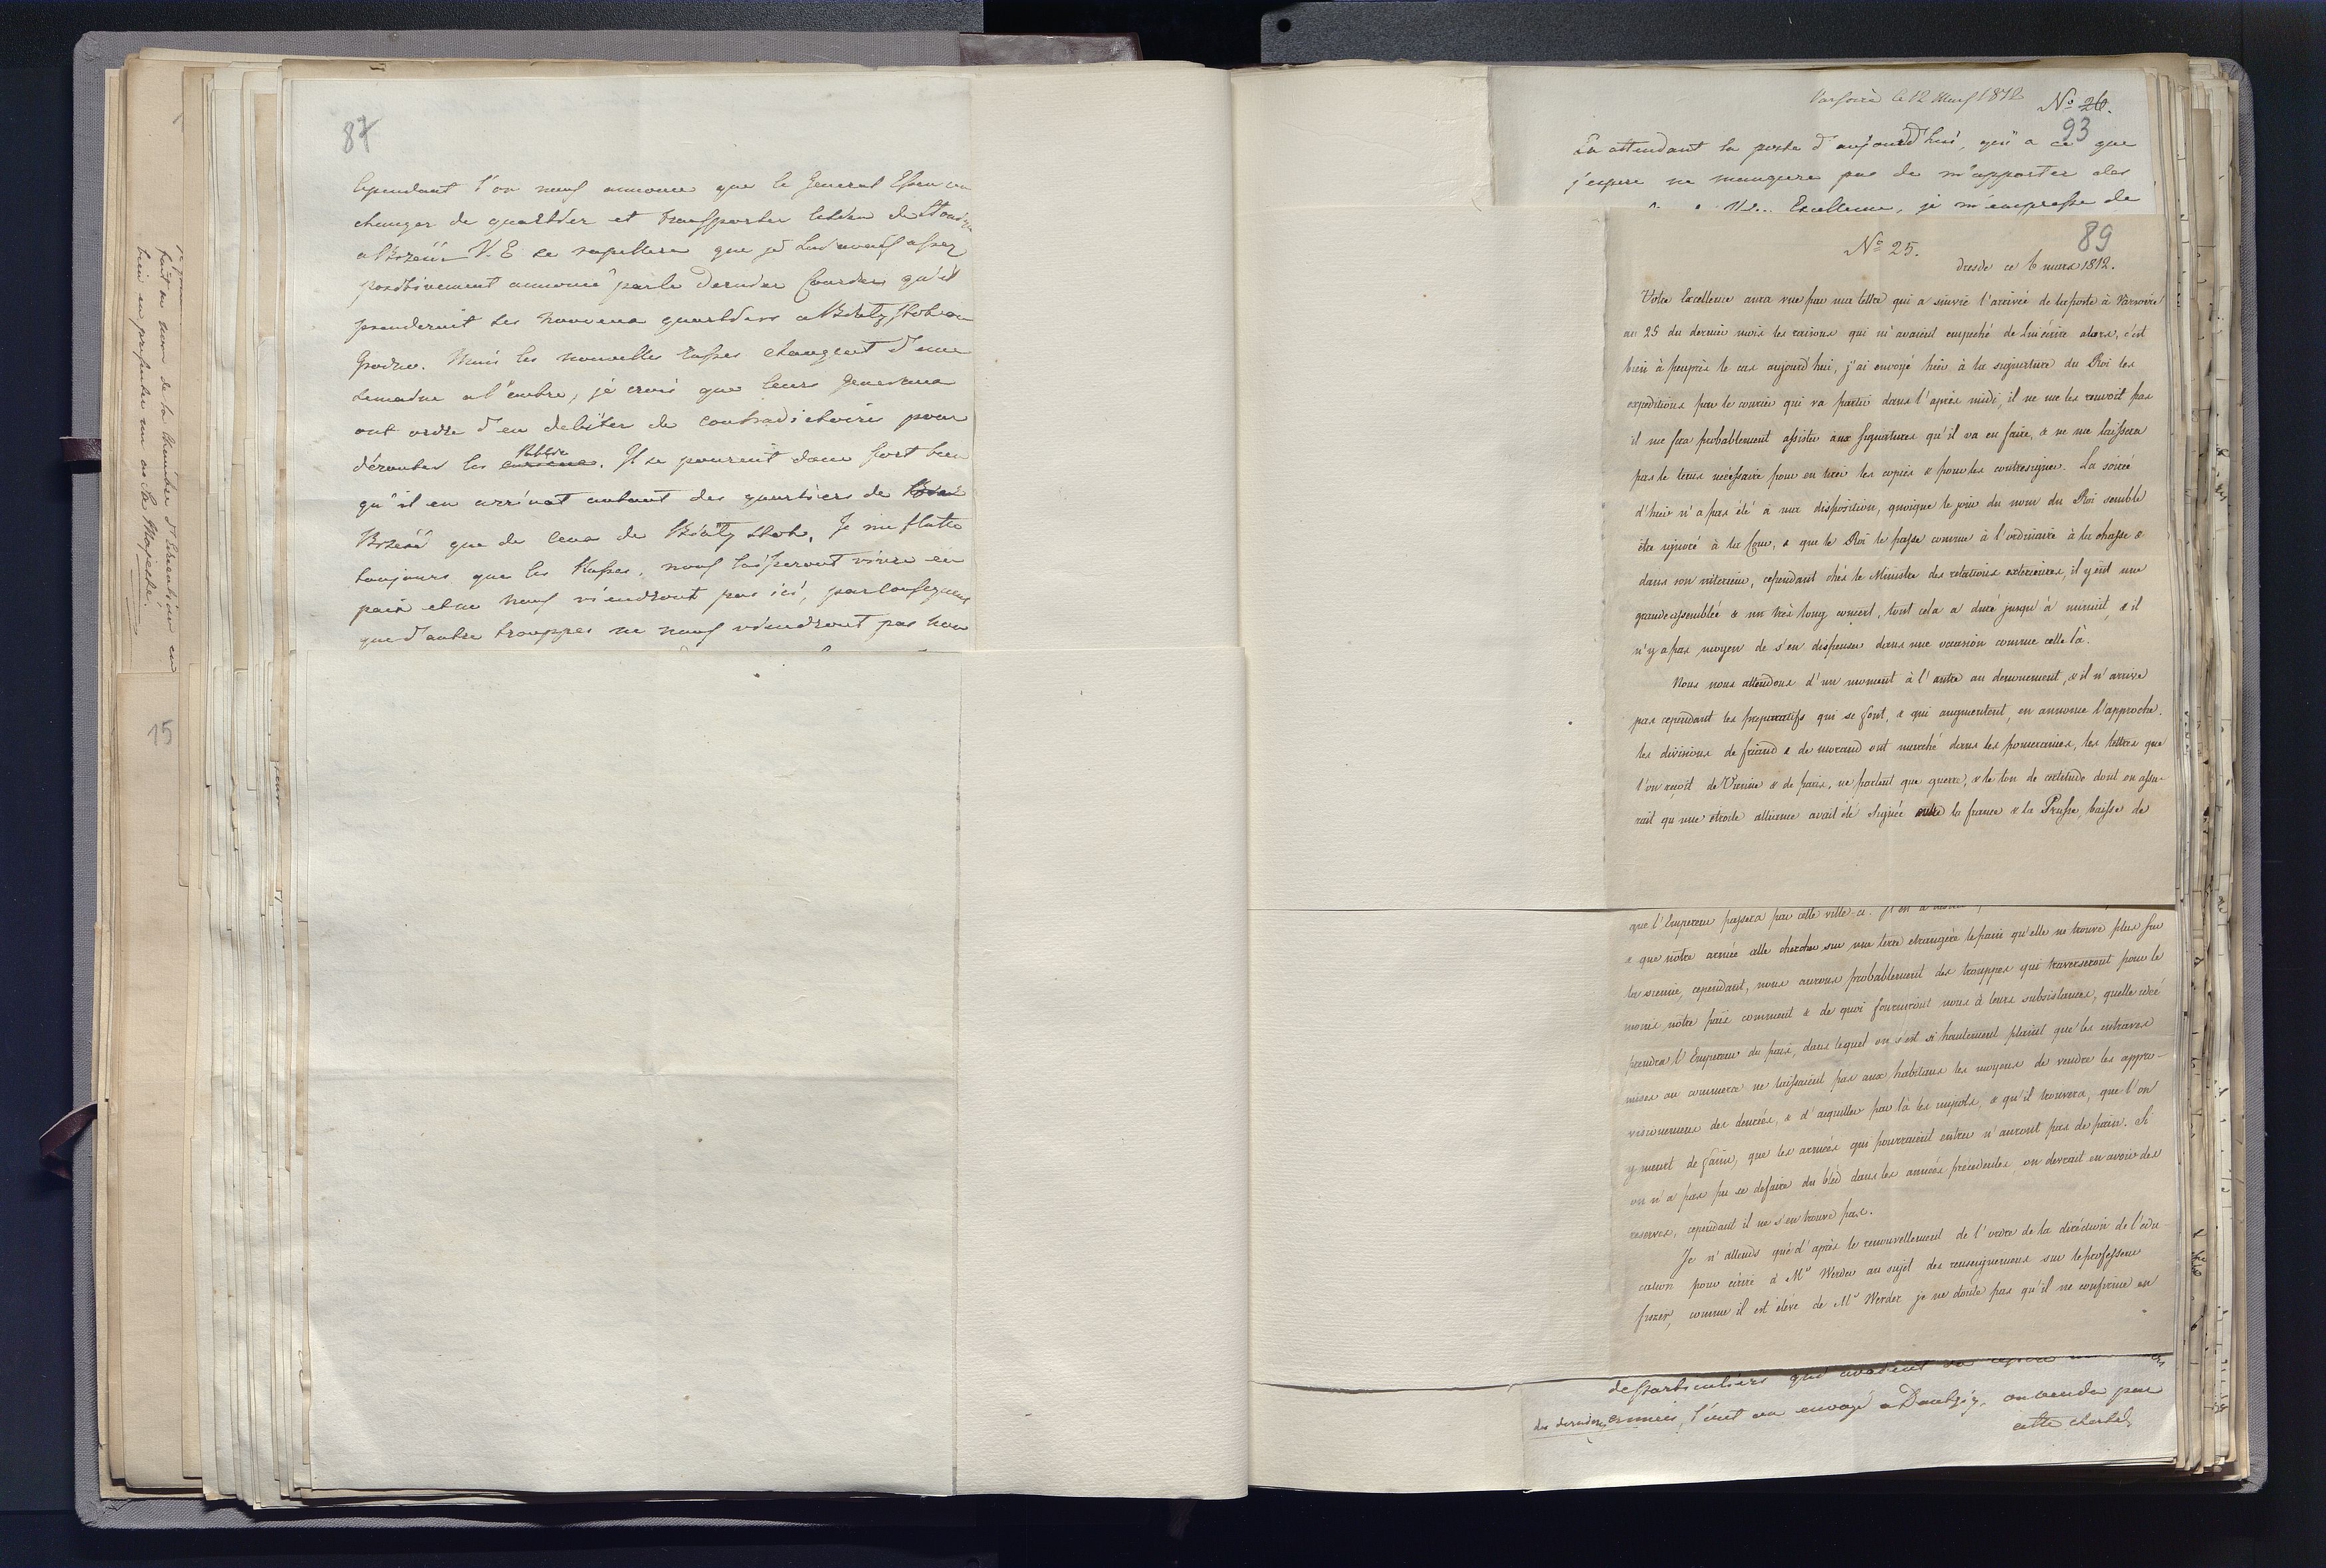 87
Cependant l'on nous annonce que le General Essen va
changer de quartier et transporter celui de
a Brzesc V. E se rapellera que je lui avais assez
positivement annoncé par le dernier Courier qu'il
prenderait ses nouveaux quartiers a Bialystok ou
Grodno. Mais les nouvelles Russes changent d'une
semaine a l'autre, je crois que leurs Generaux
ont ordre d'en debiter de contradictoire pour
dérouter les curieux. Public Il se pourait donc fort bien
qu'il en arrivat autant des quartiers de
Brzesc que de ceux de Bialystok. Je me flatte
toujours que les Russes, nous laisseront vivre en
paix et ne nous viendront pas ici, par consequent
que d'autre trouppes ne nous viendront pas non
faut au nom de la Chambre d'Education en
bien en presenter un au Sa Majesté.
75
Varsovie le 12 Mars 1812
No 26.
93
En attendant la poste d'aujourd'hui, qui a ce que
j'espere ne manquera pas de m'apporter des
Excellence, je m'empresse de
89
No 25.
dresde ce 6 mars 1812.
Votre Excellence aura vue par ma lettre qui a suivie l'arrivée de la poste à Varsovie
au 25 du dernier mois les raisons qui m'avaient empeché de lui écrire alors, c'est
bien à peuprès le cas aujourd'hui, j'ai envoyé hier à la signature du Roi les
expeditions par le courier qui va partir dans l'après midi, il ne me les renvoit pas
il me fera probablement assister aux signatures qu'il va en faire, & ne me laissera
pas le tems nécéssaire pour en tirer les copies & pour les contresigner. La soirée
d'hier n'a pas été à ma disposition, quoique le jour du nom du Roi semble
être ignoré à la Cour, & que le Roi le passe comme à l'ordinaire à la chasse &
dans son interieur, cependant chés le Ministre des relations exterieures, il y eut une
grande assemblée & un très long concert, tout cela a duré jusqu'à minuit, & il
n'y a pas moyen de s'en dispenser dans une occasion comme celle là.
Nous nous attendons d'un moment à l'autre au denouement, & il n'arrive
pas cependant les preparatifs qui se font, & qui augmentent, en annonce l'approche.
les divisions de friand & de morand ont marché dans les pomeranies, les lettres que
l'on reçoit de Vienne & de paris, ne parlent que guerre, & le ton de certitude dont on assu-
rait qu'une etroite alliance avait été signée entre la france & la Prusse, baisse de
que l'Empereur passera par cette ville ci.
& que nôtre armée aille chercher sur une terre etrangère le pain qu'elle ne trouve plus sur
la sienne, cependant, nous aurons probablement des trouppes qui traverseront pour le
moins nôtre païs comment & de quoi fournirons nous à leurs subsistances, quelle idée
prendra l'Empereur du païs, dans lequel on s'est si hautement plaint que les entraves
mises au commerce ne laissaient pas aux habitans les moyens de vendre les appro-
visionemens des denrées, & d'acquitter par là les impots, & qu'il trouvera, que l'on
y meurt de faim, que les armées qui pourraient entrer n'auront pas de pain. Si
on n'a pas pu se defaire du bled dans les années précedentes, on devrait en avoir des
reserves, cependant il ne s'en trouve pas.
Je n'attends qué d'après le renouvellement de l'ordre de la diréction de l'edu-
cation pour ecrire à Mr Werder au sujet des renseignemens sur le professeur
comme il est élève de Mr Werder je ne doute pas qu'il ne confirme en
des particuliers qui avaient
des dernieres années, l'ont envoyé a Dantzig,
cette cherté